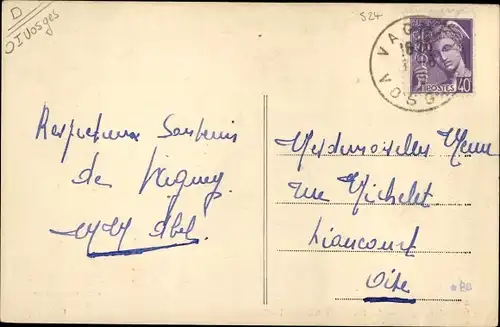 D
OI Vosges
524
VAG
VOSG
POSTES 40
Respectueux Souvenirs
de Vagney
Abel.
Mesdemoiselles
rue Michelet
Liancourt
Oise